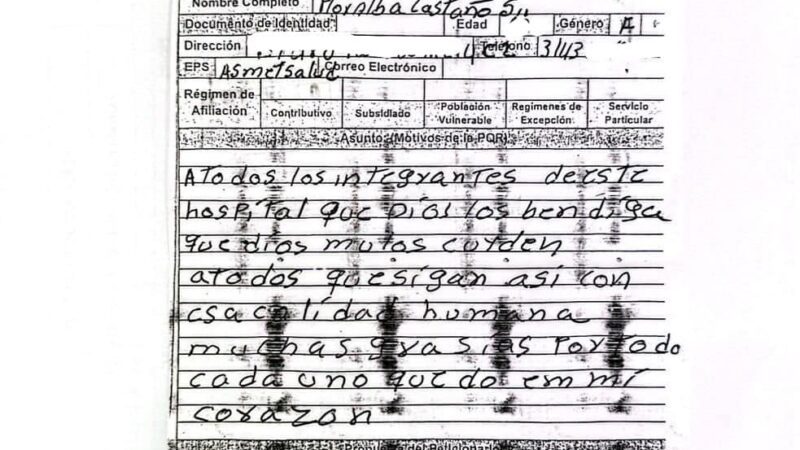 Nombre Completo Moralba Castaño S.
Documento de Identidad Edad Género A
Dirección Teléfono 3143
EPS Asmetsalud Correo Electrónico
Régimen de Afiliación Contributivo Subsidiado Población Vulnerable Regimenes de Excepción Servicio Particular
Asunto: (Motivos de la PQR)
A todos los integrantes de este
hospital que Dios los bendiga
que dios mutos cuiden
a todos que sigan asi con
esa calidad humana
muchas grasias por todo
cada uno quedo em mi
corazon